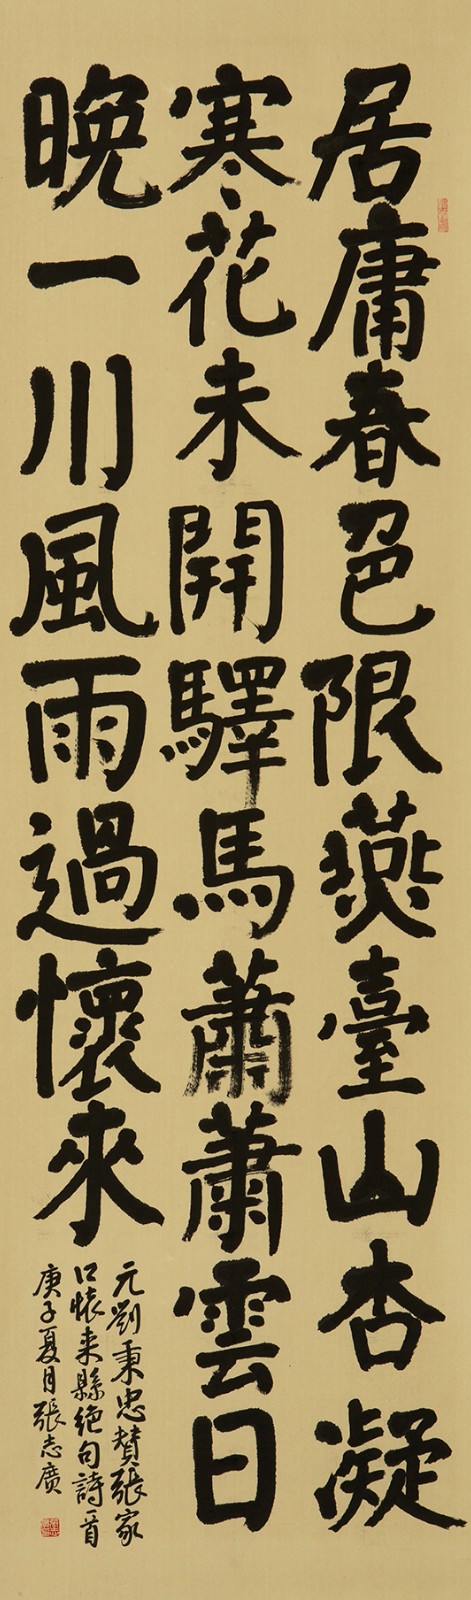 居庸春色限燕臺山杏凝
寒花未開驛馬蕭蕭雲日
晚一川風雨過懷來
元劉秉忠贊張家
口懷来縣絕句詩一首
庚子夏月張志廣